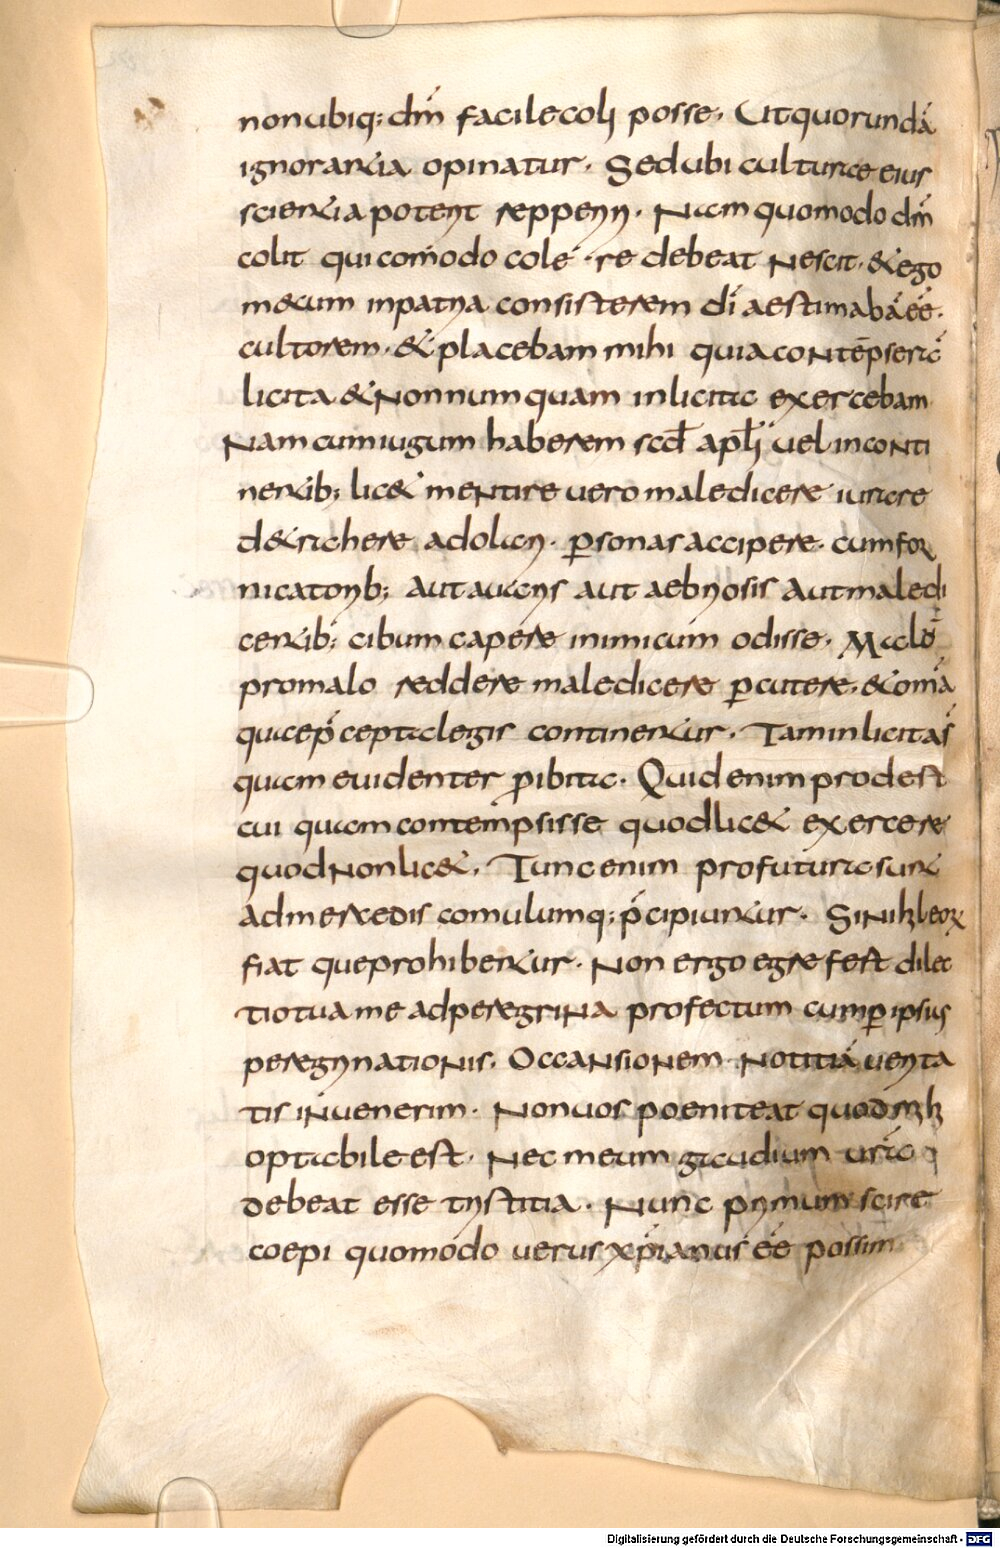 non ubiq; dm̄ facile coli posse. Ut quorundā
ignorantia opinatur. Sed ubi culturae eius
scientia potenᛏ repperiri. Nam quomodo dm̄
colit qui com̄odo cole re debeat Nescit. & ego
mecum in patria consisterem dī aestimabā eē.
cultorem. & placebam mihi quia contēpseram
licita & Non numquam inlicita exercebam
Nam cum iugum haberem scd̄ apłi uel inconti
nentib; lic& mentire uero maledicere iurare
d&rahere adolari. ꝑsonas accipere. cum for
nicatorib; aut auaris aut aebriosis aut maledi
centib; cibum capere inimicum odisse. Malū
pro malo reddere maledicere ꝑcutere. & omā
quae p̄cepta legis continentur. Tam inlicitas
quam euidenter ꝓibita. Quid enim prodest
cui quam contempsisse quod lic& exercere
quod Non lic&. Tunc enim profutura sunt
ad mercedis comulumq; p̄cipiuntur. Si nihil eorum
fiat que prohibentur. Non ergo egre fert dilec
tio tua me ad peregrina profectum cum ꝑ ipsius
peregrinationis. Occansionem Notitiā uerita
tis inuenerim. Non uos poeniteat quod mihi
optabile est. Nec meum gaudium ura
debeat esse tristitia. Nunc primum scire
coepi quomodo uerus xp̄ianus eē possim